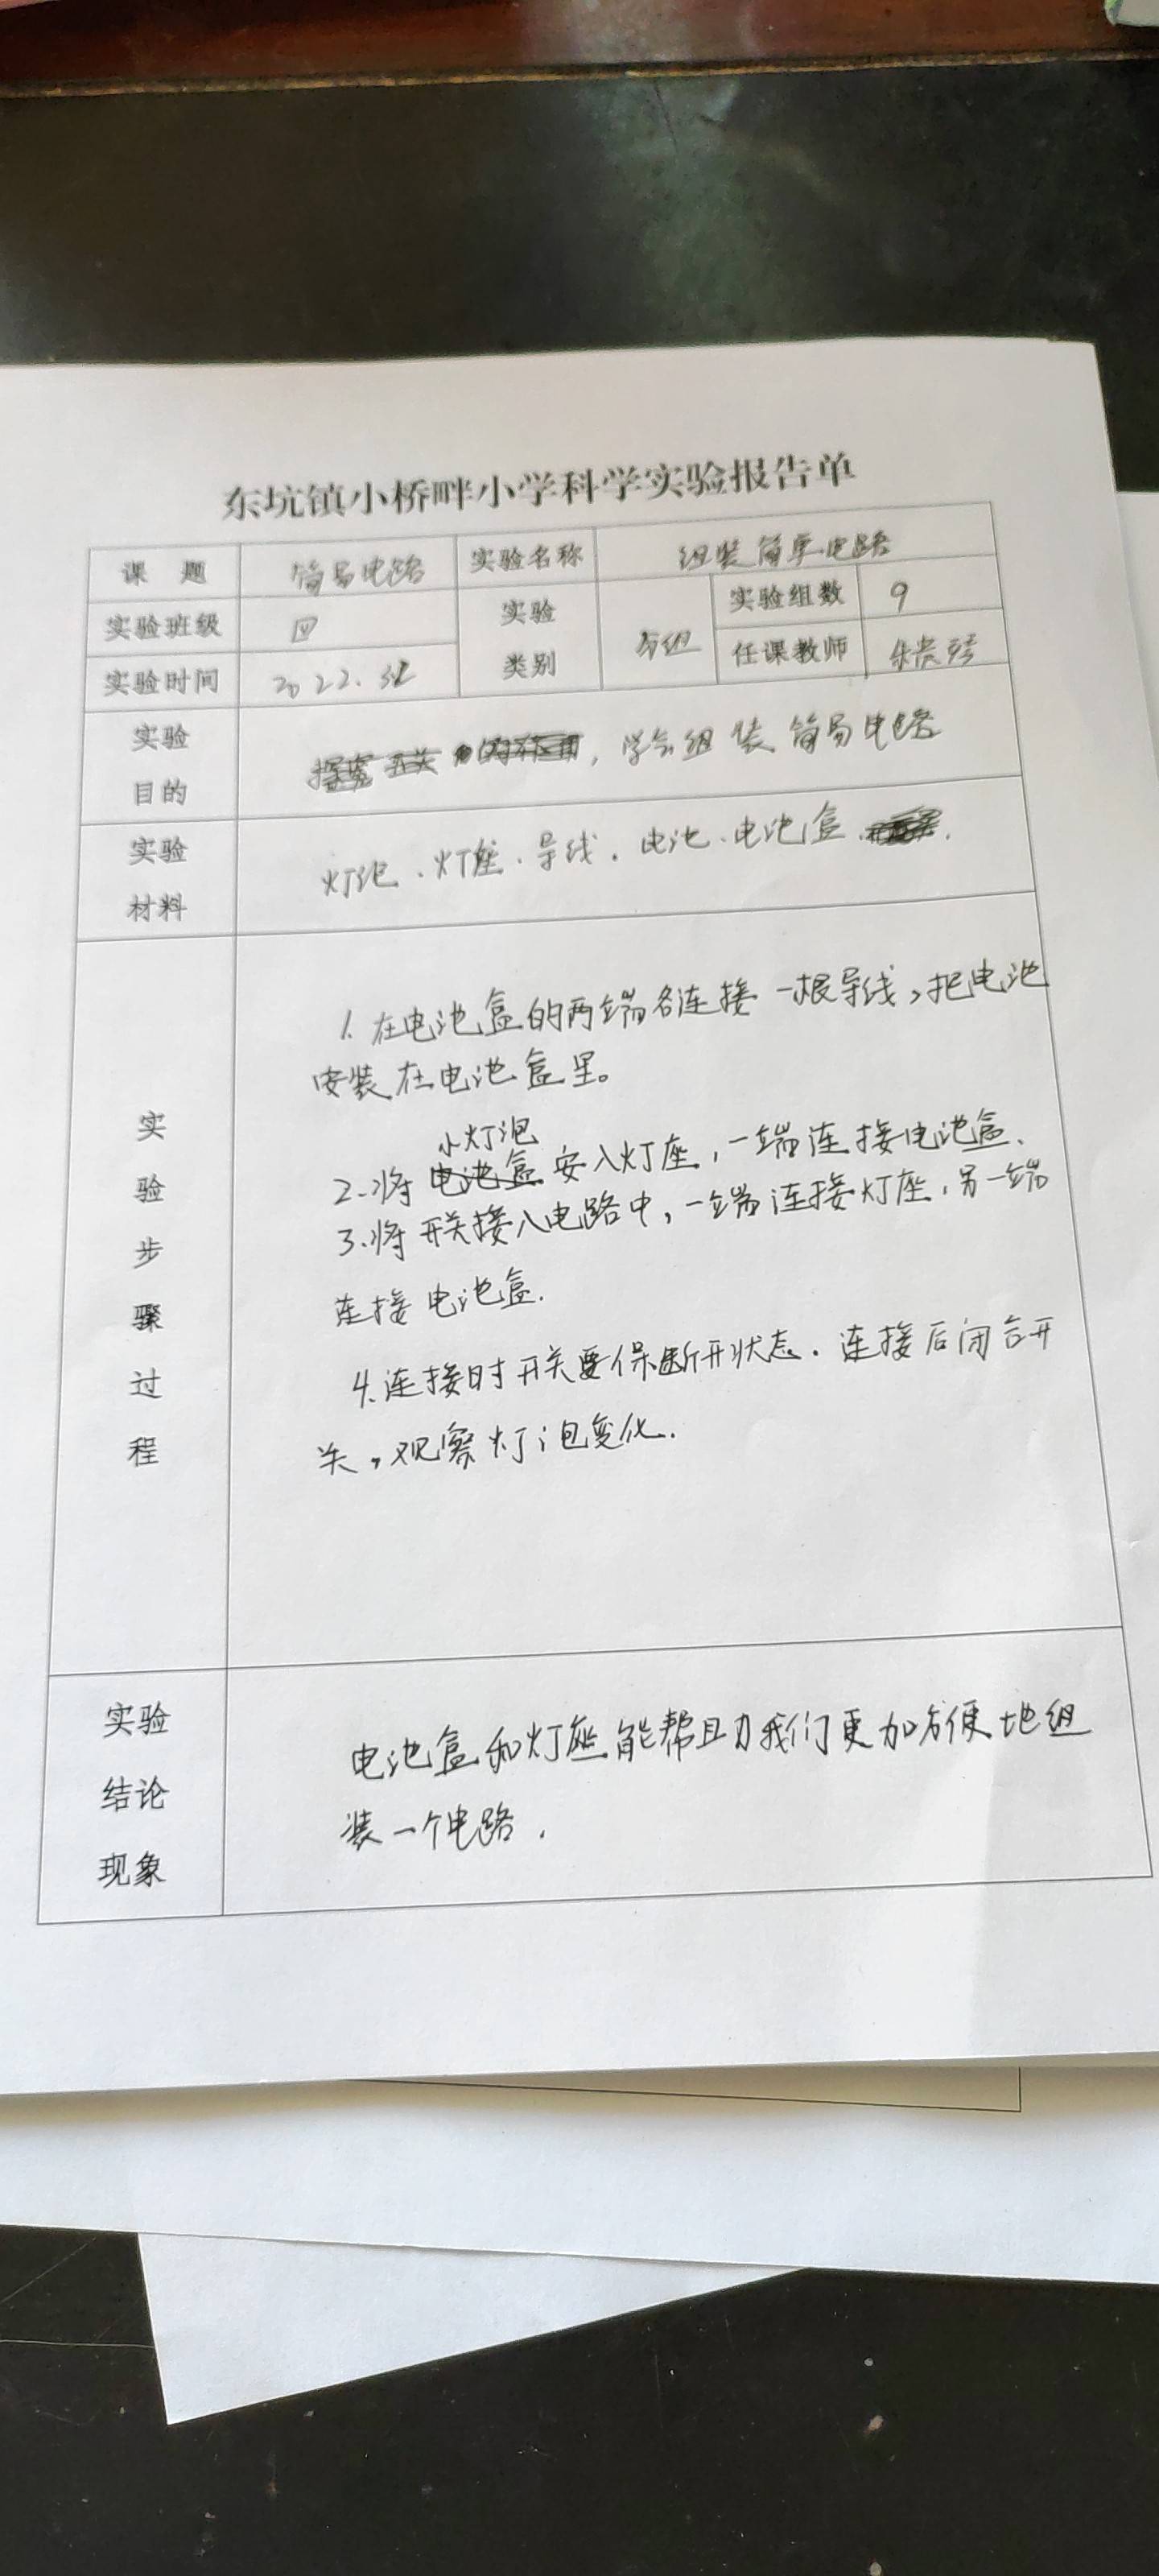 东坑镇小桥畔小学科学实验报告单
课 题 简易电路 实验名称 组装简单电路
实验班级 四 实验类别 分组 实验组数 9
实验时间 2022. 任课教师
实验目的 学会组装简易电路
实验材料 灯泡、灯座、导线、电池、电池盒
实验步骤过程
1.在电池盒的两端各连接一根导线,把电池
安装在电池盒里。
小灯泡
2.将电池盒安入灯座,一端连接电池盒、
3.将开关接入电路中,一端连接灯座,另一端
连接电池盒.
4.连接时开关要保断开状态.连接后闭合开
关,观察灯泡变化.
实验结论现象
电池盒和灯座能帮助我们更加方便地组
装一个电路.